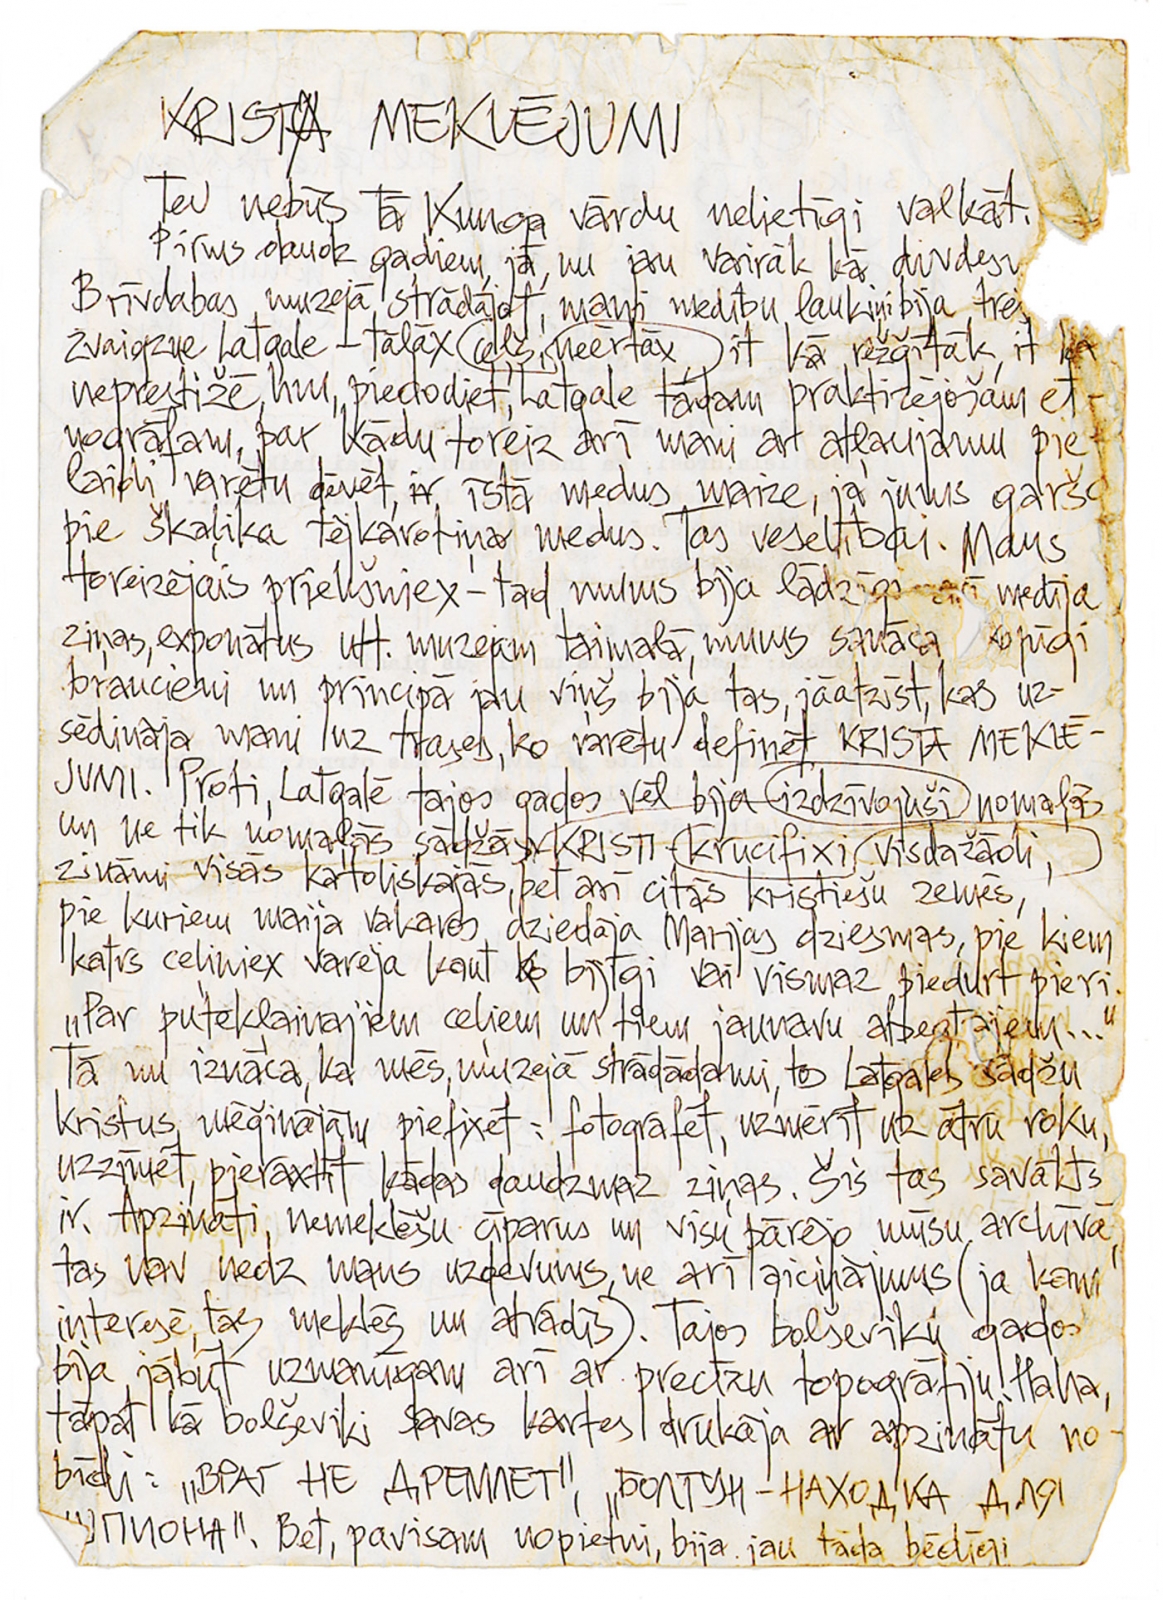 KRISTA MEKLĒJUMI
Tev nebūs tā Kunga vārdu nelietīgi valkāt.
Pirms daudz gadiem, jā, nu jau vairāk kā divdesm
Brīvdabas muzejā strādājot, mani medību lauki bija
zvaigzne Latgale – tālāx ceļš, neērtāx, it kā režģītāk, it kā
neprestižē, hm, piedodiet, Latgale tādam praktizējošam et-
nogrāfam, par kādu toreiz arī mani ar atļaujamu pie-
laidi varētu dēvēt, ir īstā medus maize, ja jums garšo
pie škaļika tējkarotiņa medus. Tas veselībai. Mans
toreizējais priekšniex – tad mums bija lādzīgi arī medīja
ziņas, exponātus utt. muzejam taimaļā, mums sanāca kopīgi
braucieni un principā jau viņš bija tas, jāatzīst, kas uz-
sēdināja mani uz trases, ko varētu definēt KRISTA MEKLĒ-
JUMI. Proti, Latgalē tajos gados vēl bija izdzīvojuši nomaļās
un ne tik nomaļās sādžās KRISTI – krucifixi, visdažādi,
zināmi visās katoliskajās, bet arī citās kristiešu zemēs,
pie kuriem maija vakaros dziedāja Marijas dziesmas, pie kiem
katrs ceļiniex varēja kaut kā bijīgi vai vismaz piedurt pieri.
„Par putekļainajiem ceļiem un tiem jaunavu atsegtajiem..."
Tā nu iznāca, ka mēs, muzejā strādādami, to Latgales sādžu
kristus mēģinājām piefixēt: fotografēt, uzmērīt uz ātru roku,
uzzīmēt, pieraxtīt kādas daudzmaz ziņas. Šis tas savākts
ir. Apzināti, nemeklēšu ciparus un visu pārējo mūsu archīvā,
tas nav nedz mans uzdevums, ne arī aicinājums (ja kam
interesē, tas meklēs un atradīs). Tajos boļševiku gados
bija jābūt uzmanīgam arī ar precīzu topogrāfiju. Haha,
tāpat kā boļševiki savas kartes drukāja ar apzinātu no-
bīdi: „ВРАГ НЕ ДРЕМЛЕТ", „БОЛТУН – НАХОДКА ДЛЯ
ШПИОНА". Bet, pavisam nopietni, bija jau tāda bēdīgi